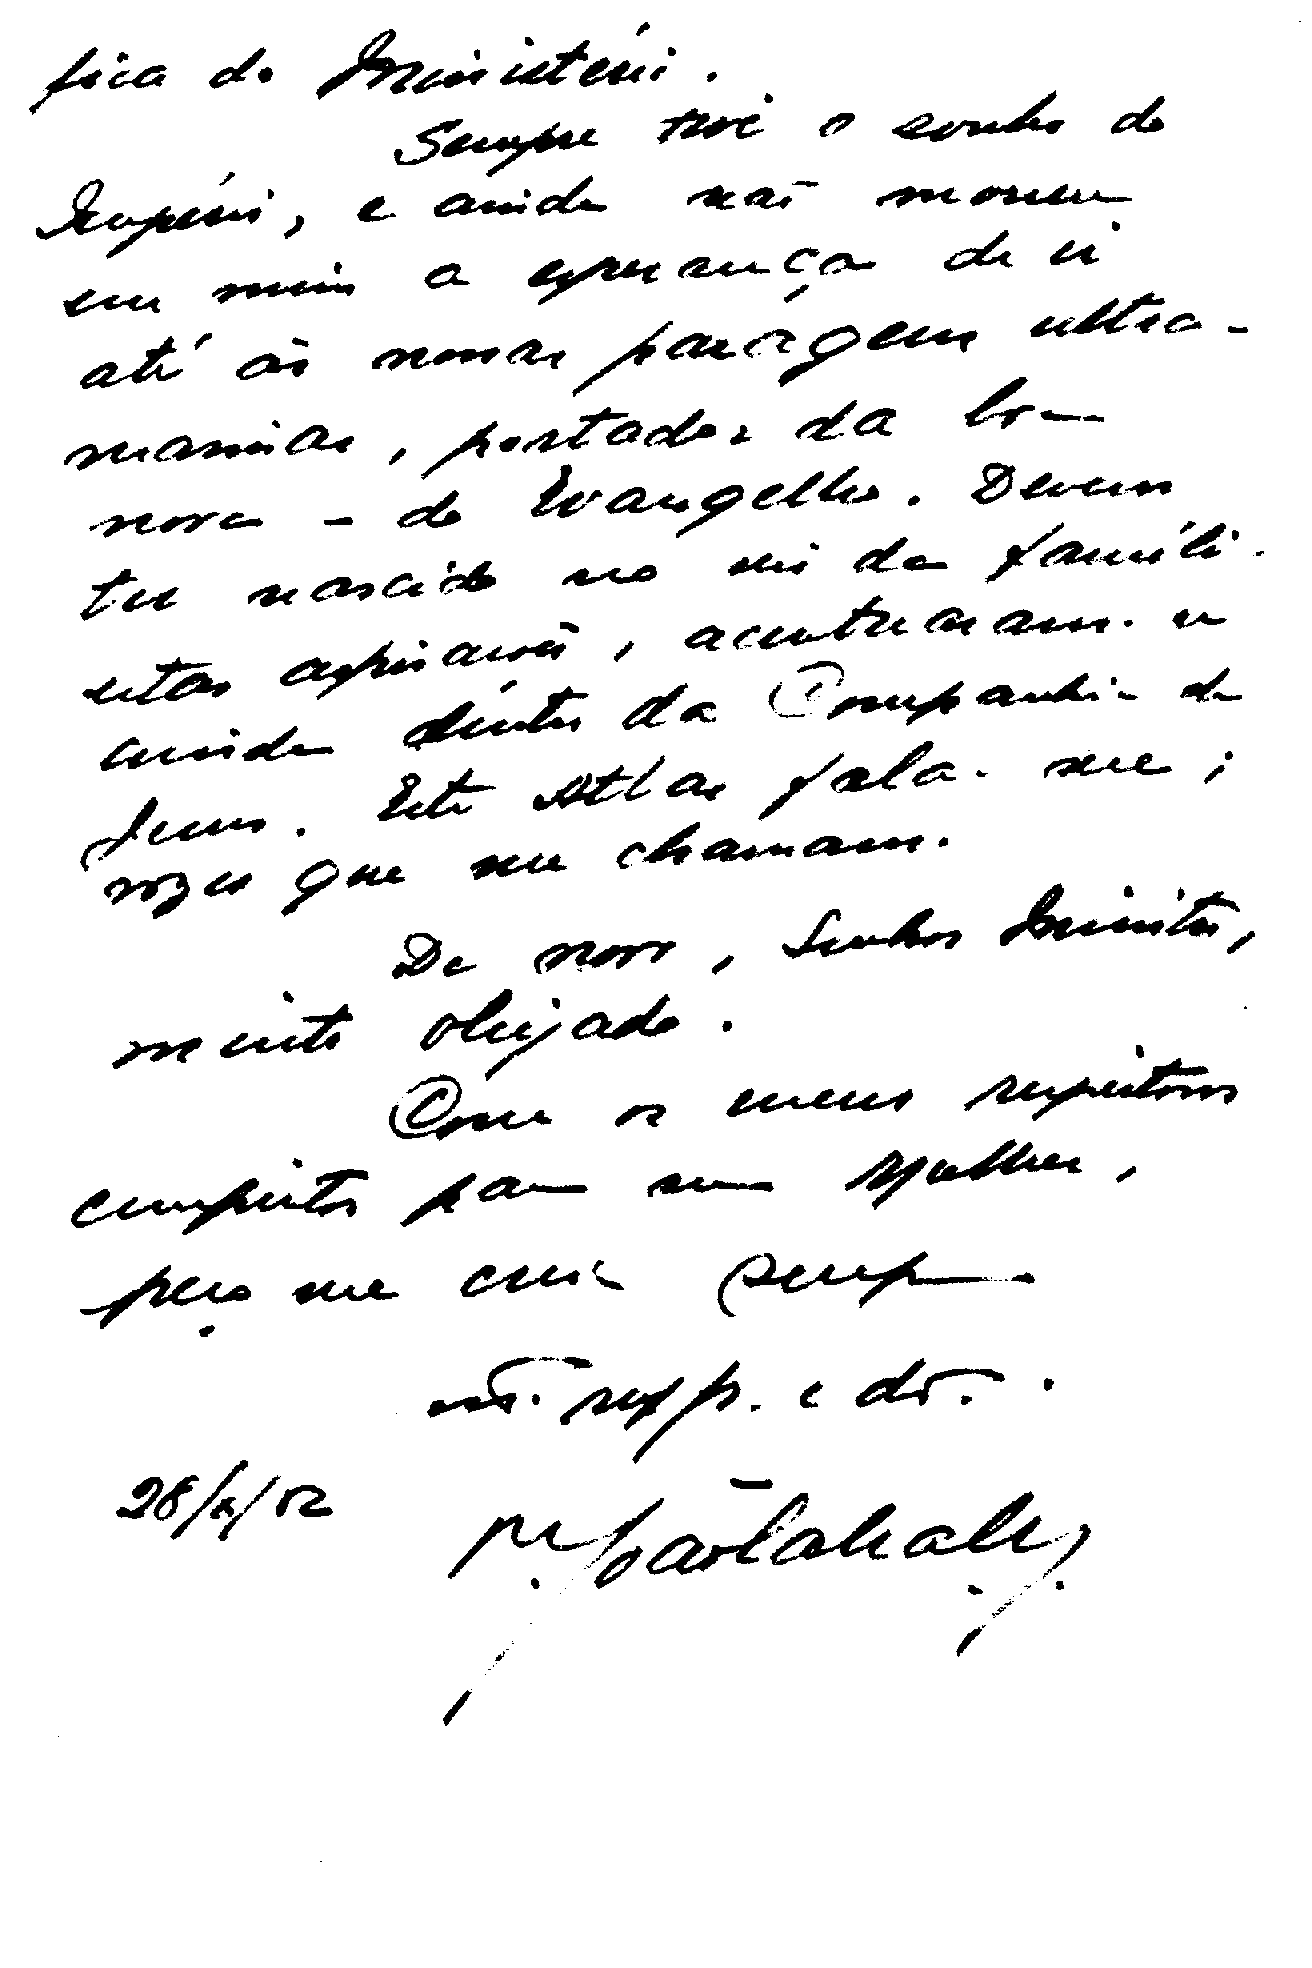 fica do Ministério.
Sempre tive o sonho do
Império, e ainda não morreu
em mim a esperança de ir
até às nossas paragens ultra-
marinas, portador da boa
nova - do Evangelho. Devem
ter nascido no seio da família
estas aspirações, acentuaram-se
ainda dentro da Companhia de
Jesus. Este Atlas fala-me;
vozes que me chamam.
De novo, Senhor Ministro,
muito obrigado.
Com os meus respeitosos
cumpritos para sua Mulher,
peço me creia sempre
mto. resp. e do.
28/X/52